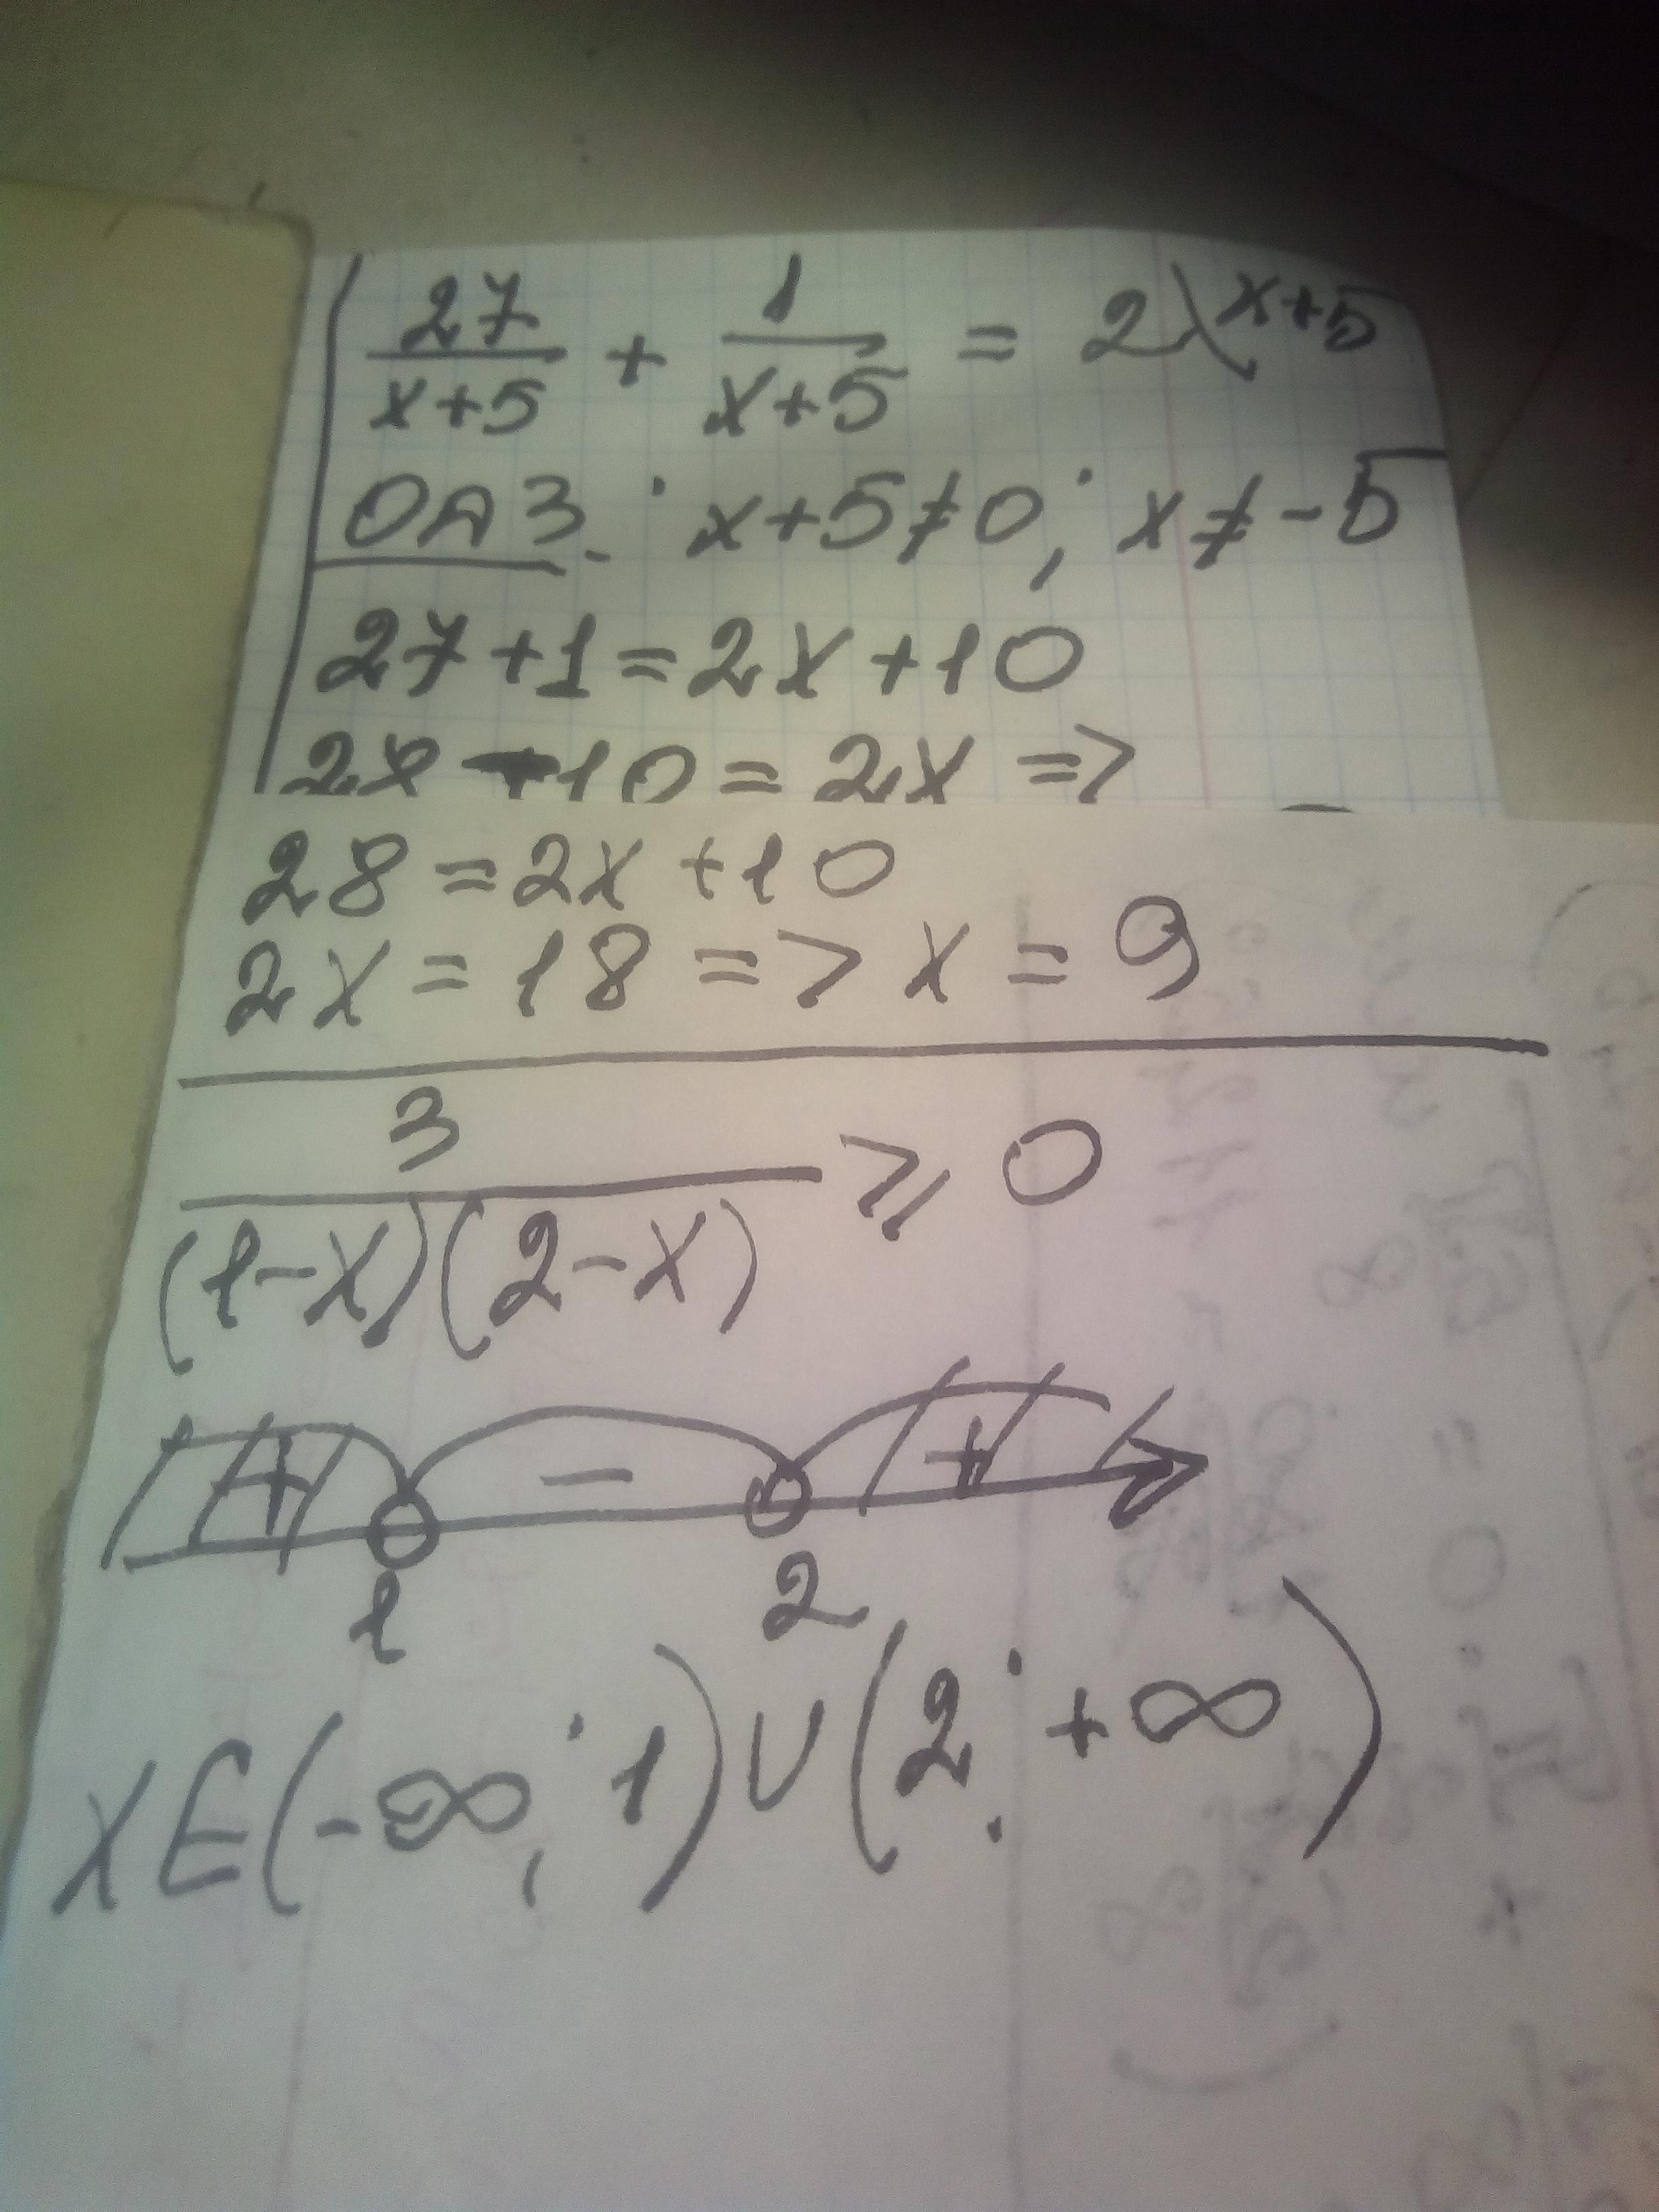 27/(x+5) + 1/(x+5) = 2\x+5
ОДЗ: x+5≠0; x≠-5
27+1=2x+10
2x-10=2x =>
28=2x+10
2x=18 => x=9
3/((1-x)(2-x)) ⩾ 0
+ - +
1 2
x∈(-∞; 1)∪(2; +∞)